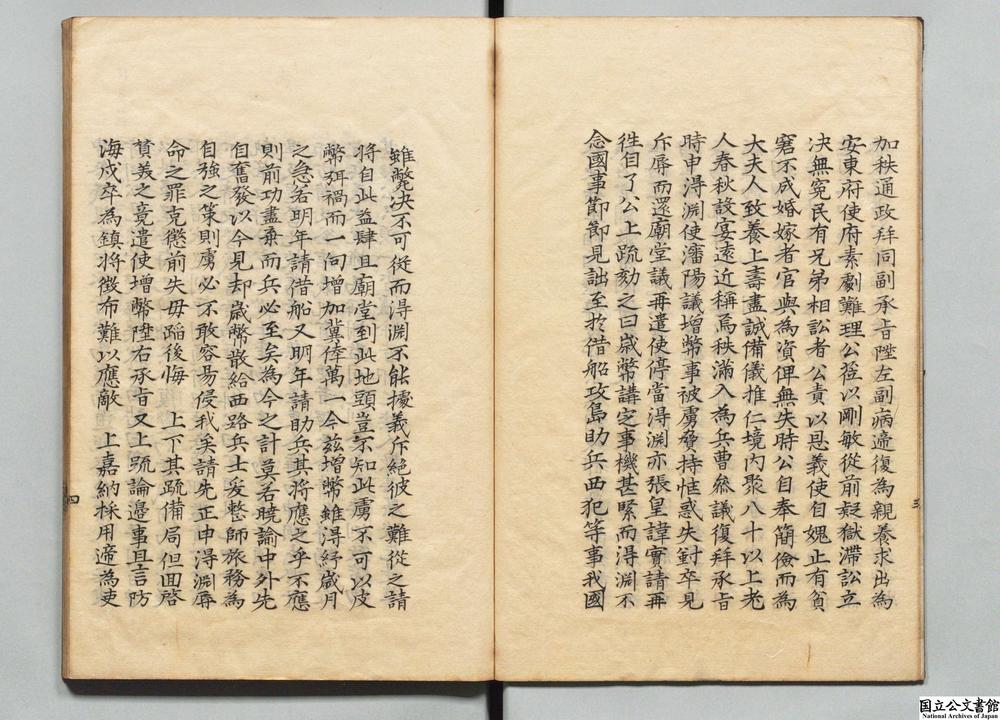 加秩通政拜同副承旨陞左副病遞復為親養求出為
安東府使府素劇難理公莅以剛敏從前疑獄滯訟立
决無寃民有兄弟相訟者公責以恩義使自媿止有貧
窘不成婚嫁者官與為資俾無失時公自奉簡儉而為
大夫人致養上壽盡誠備儀推仁境內聚八十以上老
人春秋設宴遠近稱焉秩滿入為兵曹叅議復拜承旨
時申淂淵使瀋陽議增幣事被虜脅持恇惑失對卒見
斥辱而還廟堂議再遣使停當淂淵亦張皇諱實請再
徃自了公上疏劾之曰歲幣講㝎事機甚緊而得淵不
念國事節節見詘至於借船攻島助兵西犯等事我國
三
雖斃决不可從而得淵不能據義斥絕彼之難從之請
將自此益肆且廟堂到此地頭豈不知此虜不可以皮
幣弭禍而一向增加冀倖萬一今玆增幣雖得紓歲月
之急若明年請借船又明年請助兵其將應之乎不應
則前功盡棄而兵必至矣為今之計莫若曉諭中外先
自奮發以今見却歲幣散給西路兵士爰整師旅務為
自強之策則虜必不敢容易侵我矣請先正申得淵辱
命之罪克懲前失毋蹈後悔 上下其疏備局但回啓
贊美之竟遣使增幣陞右承旨又上疏論邊事且言防
海戍卒為鎮將徵布難以應敵 上嘉納採用遞為吏
四
国立公文書館
National Archives of Japan